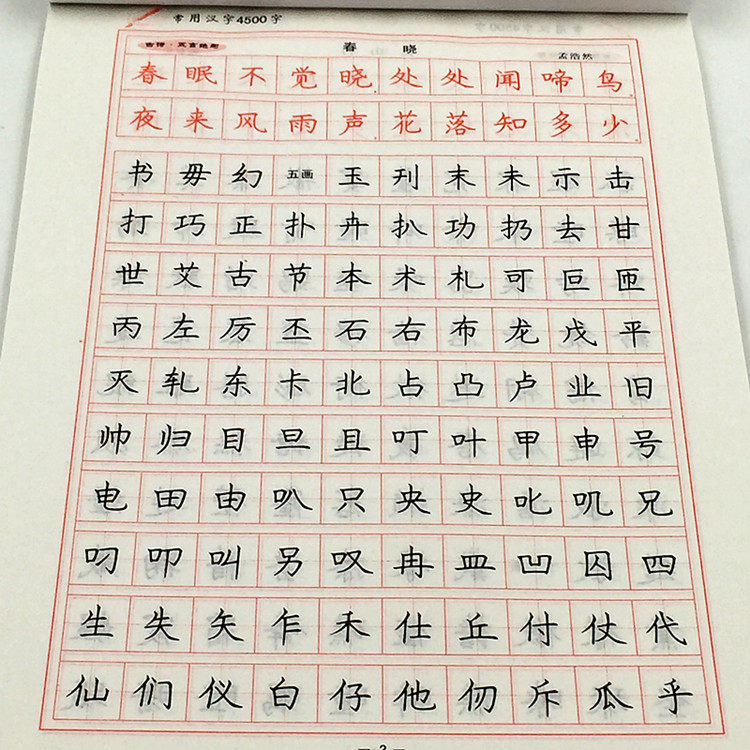 常用汉字4500字
古诗·五言绝句
春 晓
孟浩然
春眠不觉晓处处闻啼鸟
夜来风雨声花落知多少
书毋幻五画玉刊末未示击
打巧正扑卉扒功扔去甘
世艾古节本术札可叵匝
丙左厉丕石右布龙戊平
灭轧东卡北占凸卢业旧
帅归目旦且叮叶甲申号
电田由叭只央史叱叽兄
叼叩叫另叹冉皿凹囚四
生失矢乍禾仕丘付仗代
仙们仪白仔他仞斥瓜乎
— 2 —